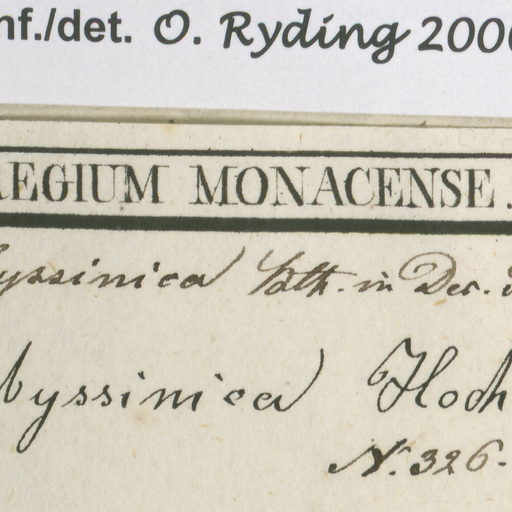 nf./det. O. Ryding 2006
REGIUM MONACENSE.
byssinica Bth. in Dec.
byssinica Hoch
N. 326.